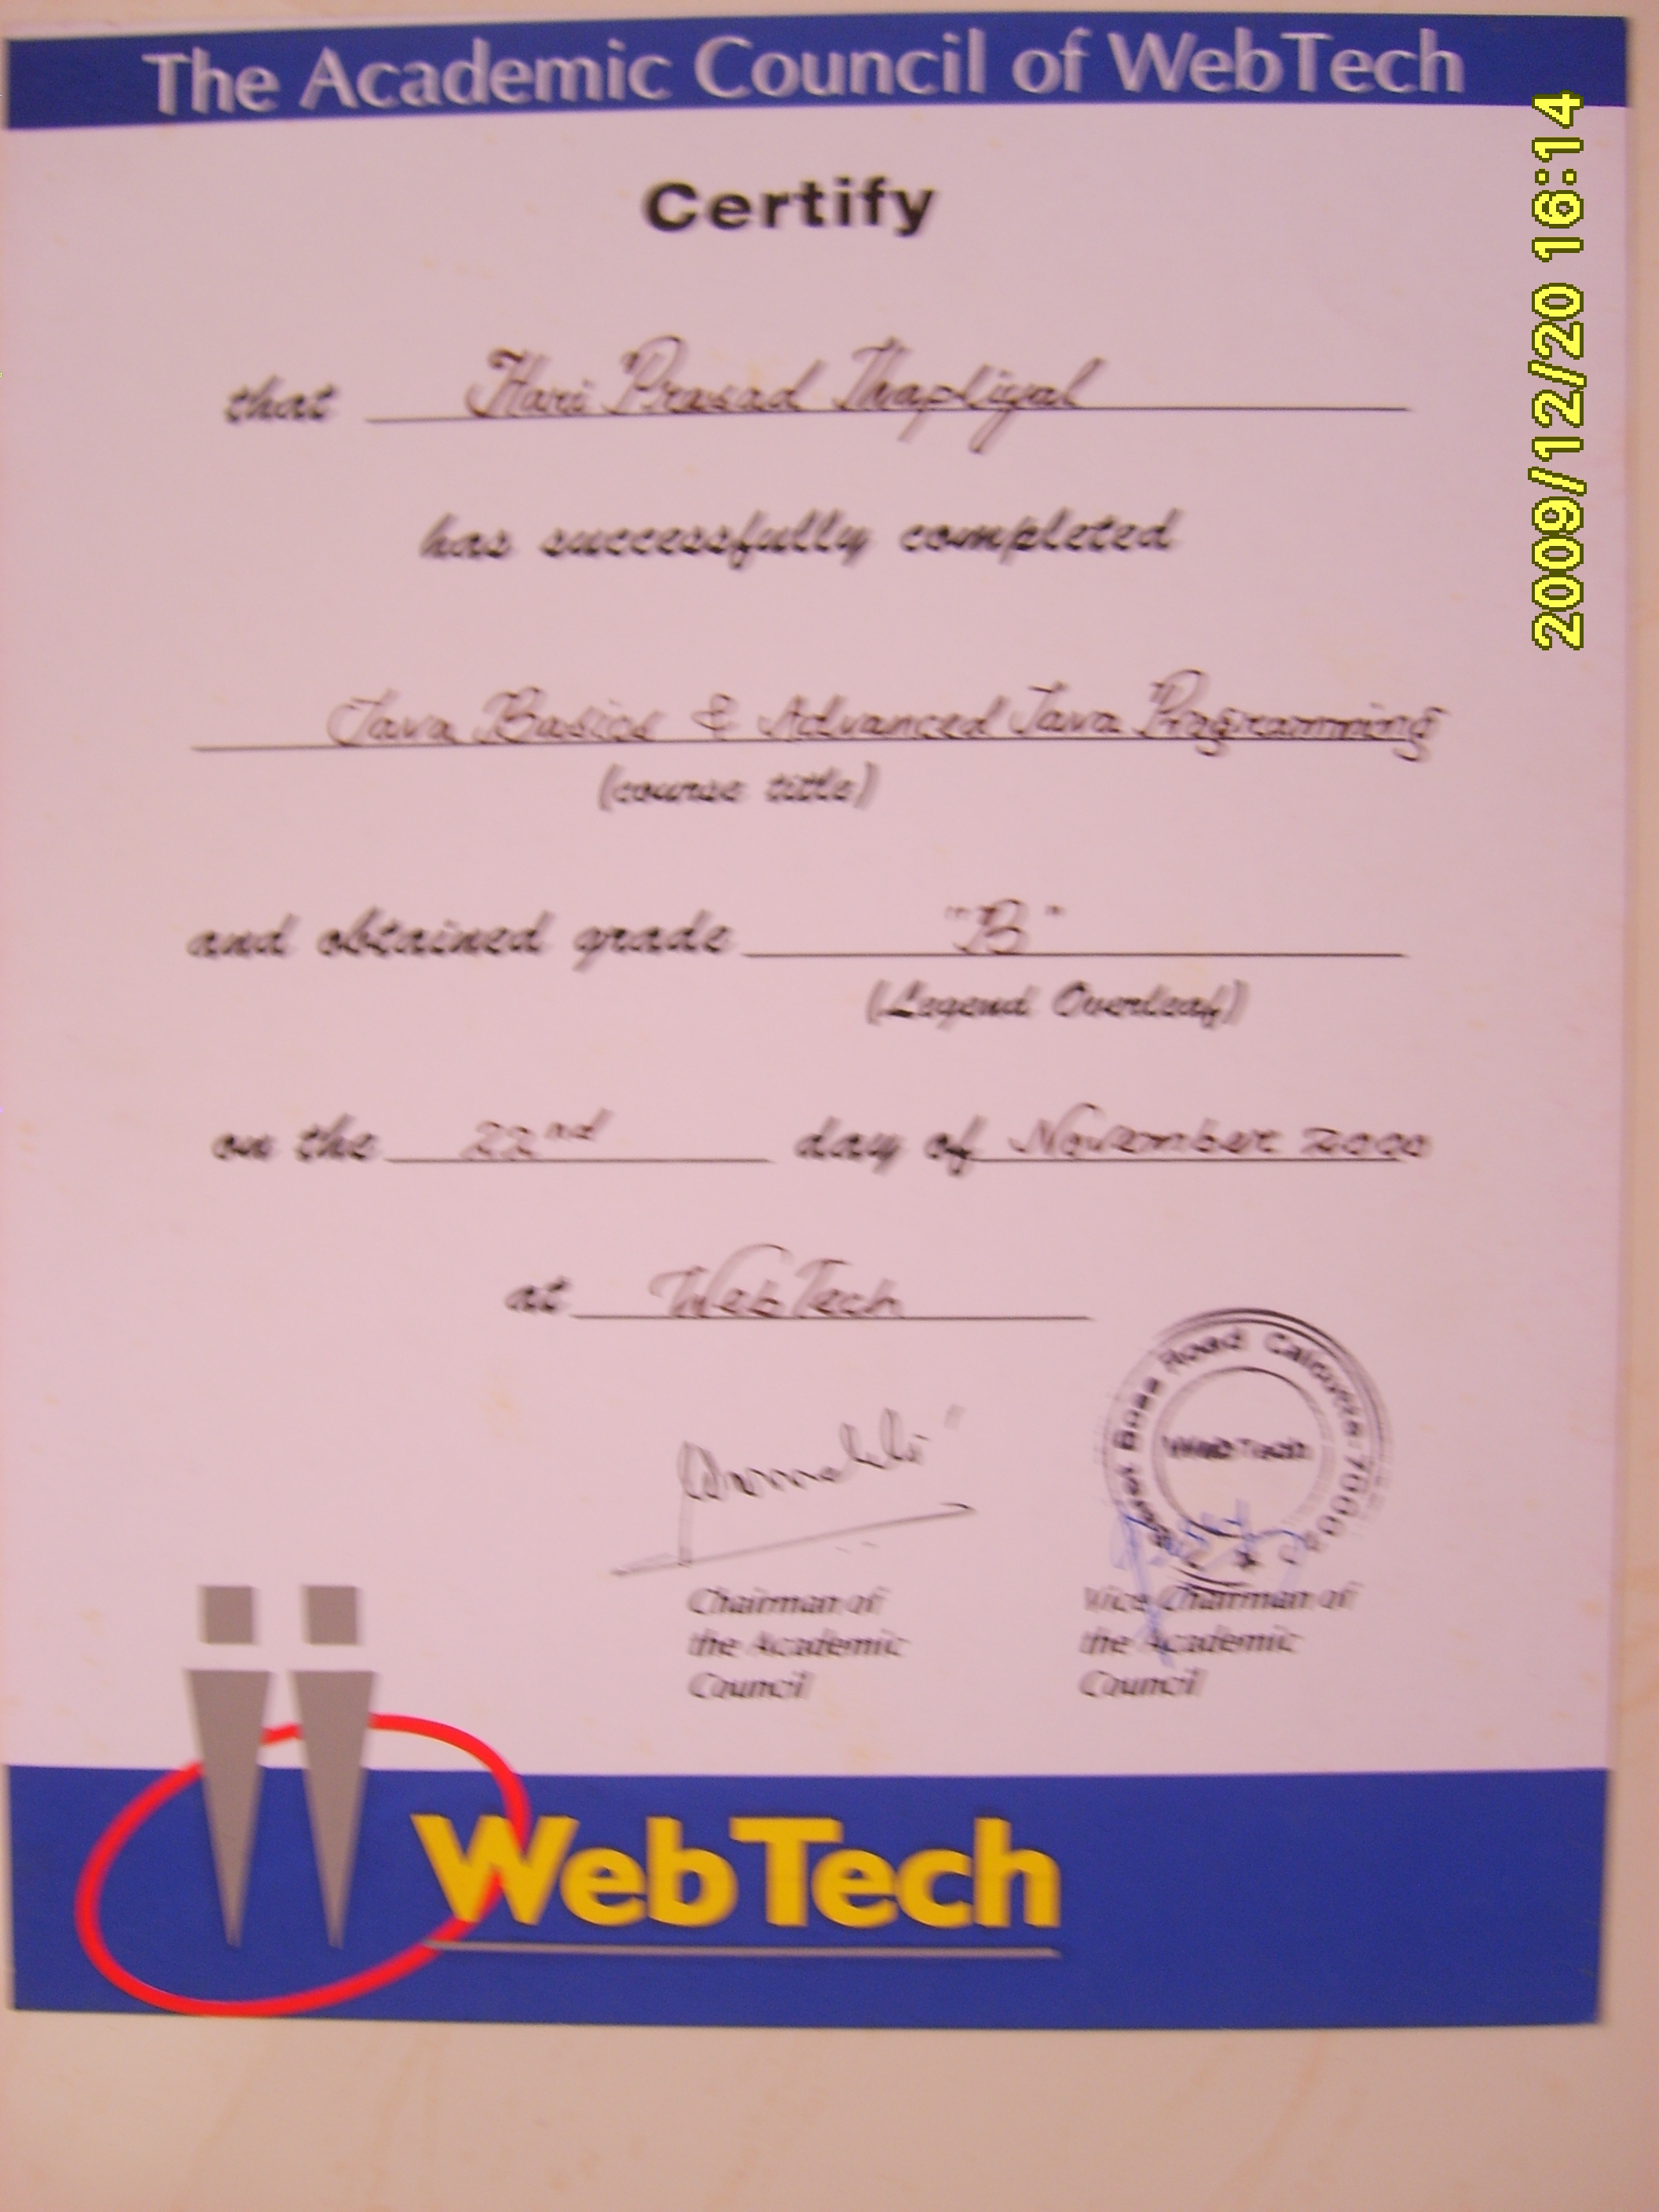 The Academic Council of WebTech
Certify
that Hari Prasad Thapliyal
has successfully completed
Java Basics & Advanced Java Programming
(course title)
and obtained grade "B"
(Legend Overleaf)
on the 22nd day of November 2000
at WebTech
Bose Road
WebTech
Chairman of
the Academic
Council
Vice Chairman of
the Academic
Council
WebTech
2009/12/20 16:14